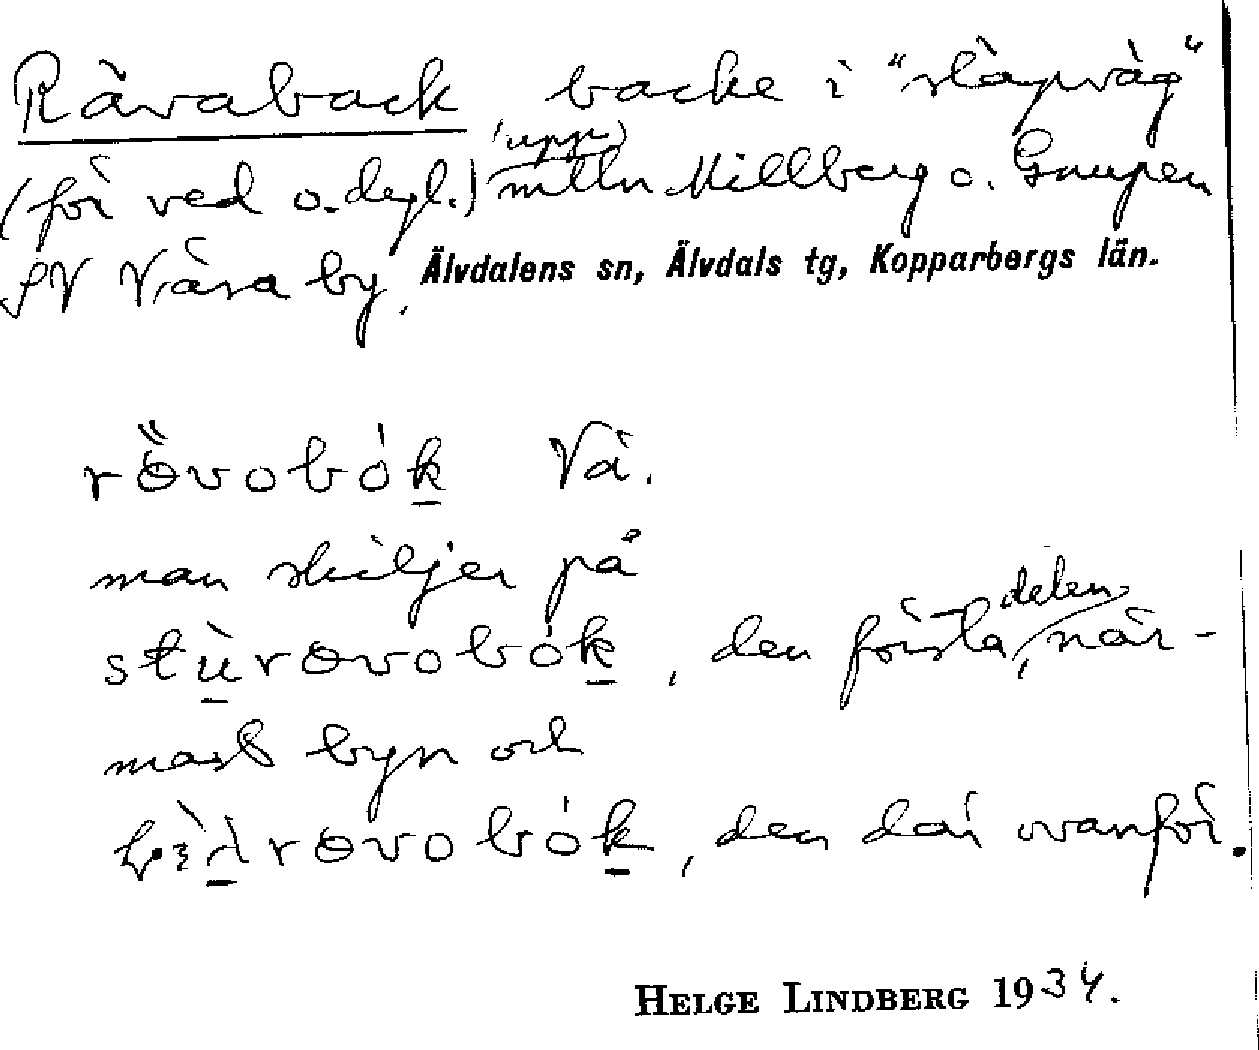 Rävaback backe i "släpväg"
(upp)
(för ved o. degl.) mlln Millberg o. Gnupen
SV Väsa by, Älvdalens sn, Älvdals tg, Kopparbergs län.
rövobók Vä.
man skiljer på
delen
stùrovobók, den första, när-
mast byn och
rovobók, den där ovanför.
HELGE LINDBERG 1934.